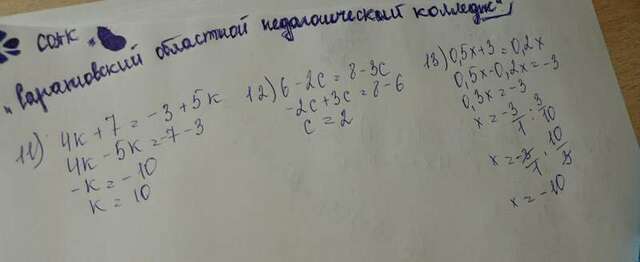 СОЖК
"Саратовский областной педагогический колледж"
11) 4к + 7 = -3 + 5к
4к - 5к = -7 - 3
-к = -10
к = 10
12) 6 - 2с = 8 - 3с
-2с + 3с = 8 - 6
с = 2
13) 0,5х + 3 = 0,2х
0,5х - 0,2х = -3
0,3х = -3
х = -3/1 : 3/10
х = -3/1 · 10/3
х = -10